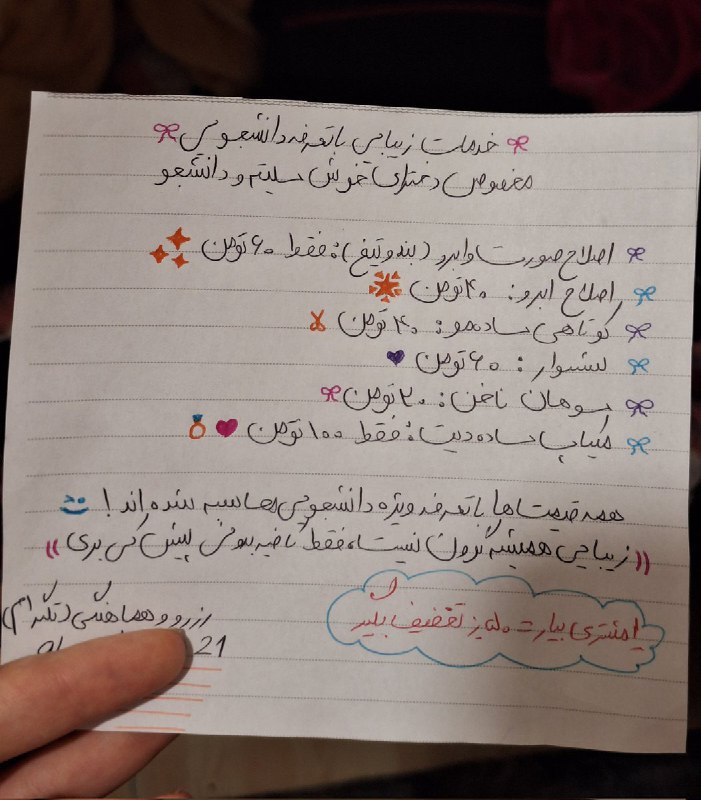 خدمات زیبایی با تعرفه دانشجویی
مخصوص دخترای خوش سلیقه و دانشجو
اصلاح صورت و ابرو (بند و تیغ): فقط ۶۰ تومن
اصلاح ابرو: ۴۰ تومن
کوتاهی ساده مو: ۴۰ تومن
سشوار: ۶۰ تومن
سوهان ناخن: ۲۰ تومن
میکاپ ساده دیت: فقط ۱۰۰ تومن
همه قیمت‌ها با تعرفه ویژه دانشجویی محاسبه شده‌اند!
((زیبایی همیشه گرون نیست، فقط کافیه بدونی پیش کی بری))
۱ مشتری بیار ت ۱۰ تخفیف بگیر
رزرو و هماهنگی (تلگرام)
21